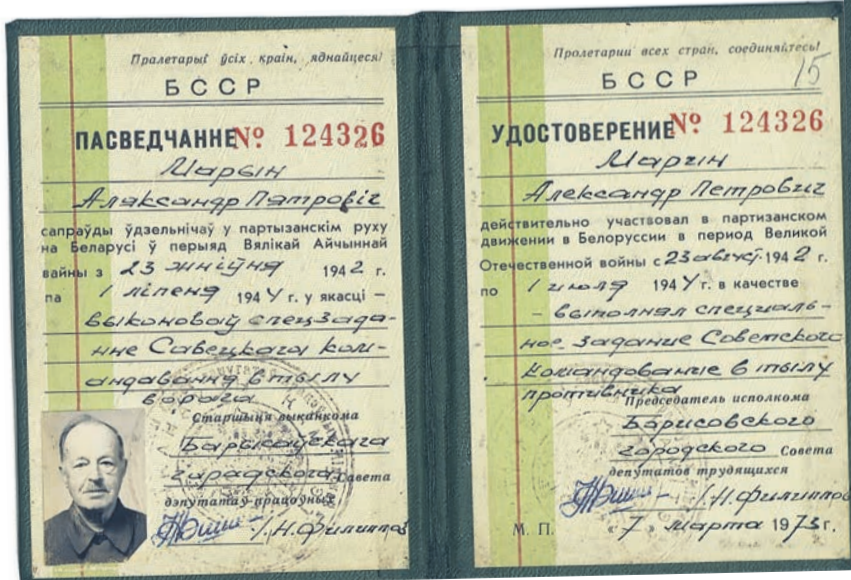 Пралетарыі ўсіх краін, яднайцеся!
БССР
ПАСВЕДЧАННЕ № 124326
Марын
Аляксандр Пятровіч
сапраўды ўдзельнічаў у партызанскім руху
на Беларусі ў перыяд Вялікай Айчыннай
вайны з 23 жніўня 1942 г.
па 1 ліпеня 1944 г. у якасці –
выконоваў спецзада-
нне Савецкага ком-
андавання в тылу
ворага
Старшыня выканкома
Барысаўскага
гарадскога Савета
дэпутатаў працоўных
/.Н.Филиппов
Пролетарии всех стран, соединяйтесь!
15
БССР
УДОСТОВЕРЕНИЕ № 124326
Марин
Александр Петрович
действительно участвовал в партизанском
движении в Белоруссии в период Великой
Отечественной войны с 23 август. 1942 г.
по 1 июля 1944 г. в качестве
– выполнял специаль-
ное задание Советского
командование в тылу
противника
Председатель исполкома
Барисовского
городского Совета
депутатов трудящихся
/.Н.Филиппов
М. П. «7» марта 1973 г.